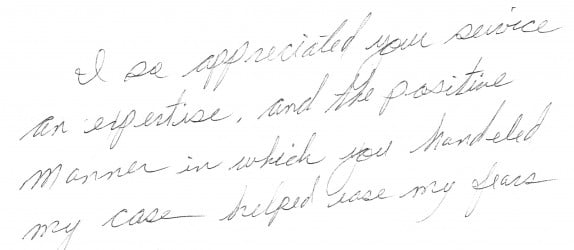 I so appreciated your service
an expertise, and the positive
manner in which you handeled
my case helped ease my fears